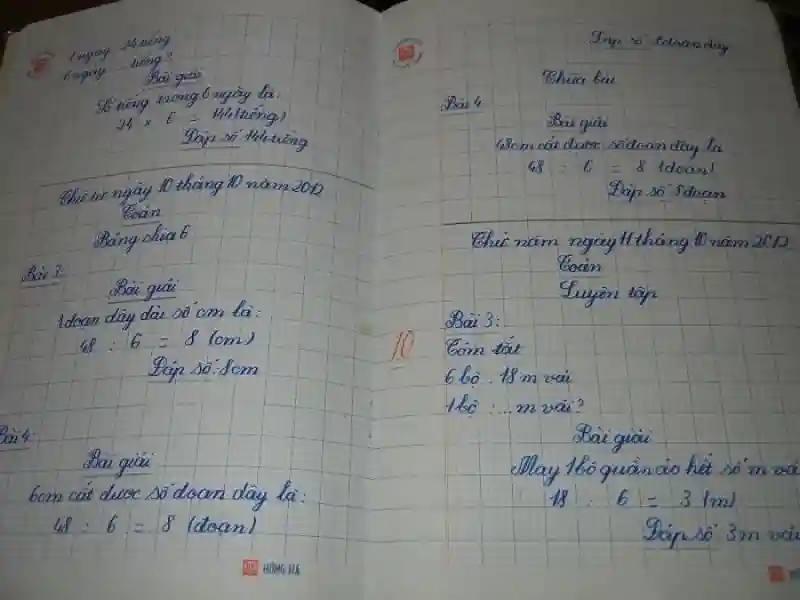 1 ngày 24 tiếng
6 ngày tiếng?
Bài giải
Số tiếng trong 6 ngày là:
24 x 6 = 144 (tiếng)
Đáp số 144 tiếng
Thứ tư ngày 10 tháng 10 năm 2012
Toán
Bảng chia 6
Bài 3:
Bài giải
1 đoạn dây dài số cm là:
48 : 6 = 8 (cm)
Đáp số: 8cm
Bài 4:
Bài giải
6cm cắt được số đoạn dây là:
48 : 6 = 8 (đoạn)
HỒNG HÀ
Đáp số 8 đoạn dây
Chữa bài
Bài 4
Bài giải
48cm cắt được số đoạn dây là
48 : 6 = 8 (đoạn)
Đáp số 8 đoạn
Thứ năm ngày 11 tháng 10 năm 2012
Toán
Luyện tập
10
Bài 3:
Tóm tắt
6 bộ : 18 m vải
1 bộ :... m vải?
Bài giải
May 1 bộ quần áo hết số m vả
18 : 6 = 3 (m)
Đáp số 3m vải
HỒNG